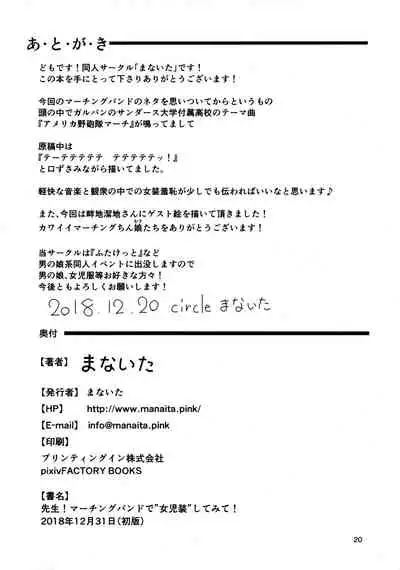 あ・と・が・き
どもです!同人サークル「まないた」です!
この本を手にとって下さりありがとうございます!
今回のマーチングバンドのネタを思いついてからというもの
頭の中でガルパンのサンダース大学付属高校のテーマ曲
『アメリカ野砲隊マーチ』が鳴ってまして
原稿中は
『テーテテテテテ テテテテテッ!』
と口ずさみながら描いてました。
軽快な音楽と観衆の中での女装羞恥が少しでも伝わればいいなと思います♪
また、今回は畔地溜地さんにゲスト絵を描いて頂きました!
カワイイマーチングちん娘たちをありがとうございます!
当サークルは『ふたけっと』など
男の娘系同人イベントに出没しますので
男の娘、女児服等お好きな方々!
今後ともよろしくお願いします!
2018.12.20 circle まないた
奥付
【著者】 まないた
【発行者】 まないた
【HP】 http://www.manaita.pink/
【E-mail】 info@manaita.pink
【印刷】
プリンティングイン株式会社
pixivFACTORY BOOKS
【書名】
先生!マーチングバンドで"女児装"してみて!
2018年12月31日(初版)
20